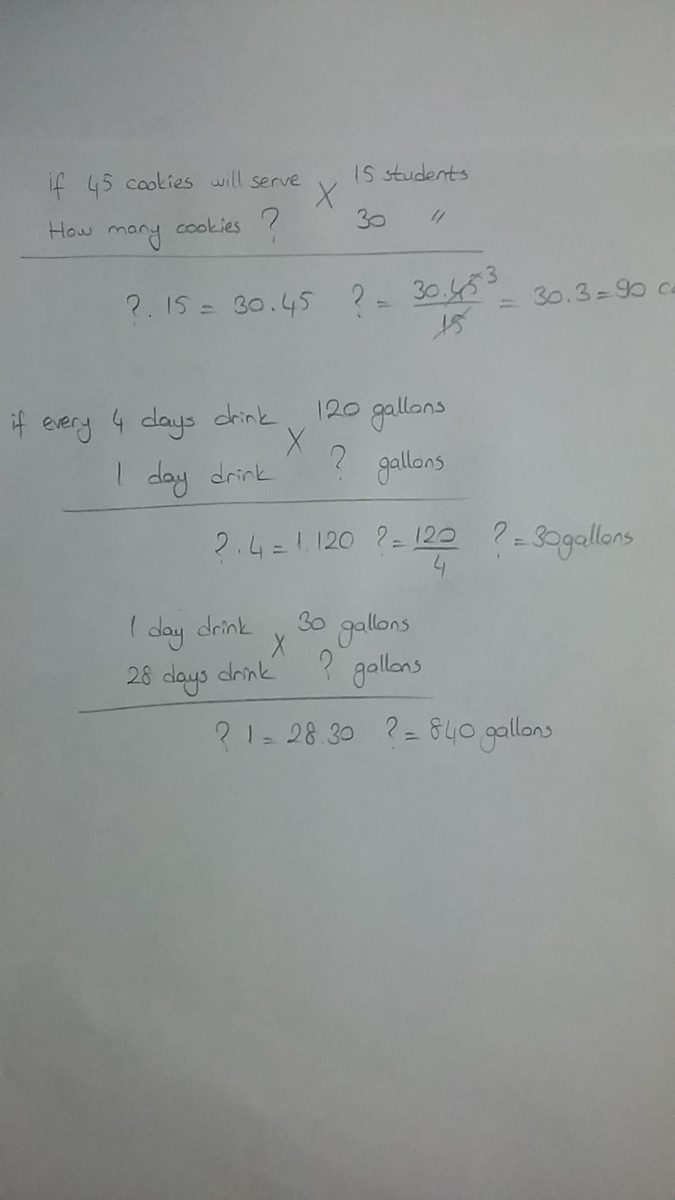 if 45 cookies will serve X 15 students
How many cookies ? 30 "
?. 15 = 30.45 ? = 30.45 3 / 15 = 30.3 = 90
if every 4 days drink X 120 gallons
1 day drink ? gallons
?. 4 = 1.120 ? = 120 / 4 ? = 30 gallons
1 day drink X 30 gallons
28 days drink ? gallons
? 1 = 28.30 ? = 840 gallons